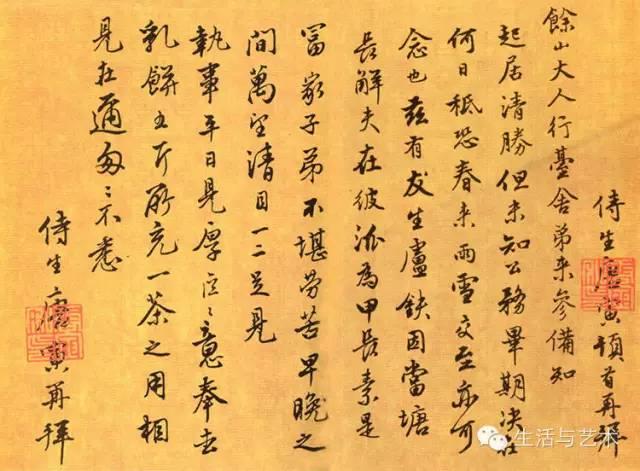 侍生唐寅頓首再拜
餘山大人行臺舍弟来參備知
起居清勝但未知公務畢期決在
何日秪恐春来雨雪交至亦可
念也茲有友生盧鈇因當塘
長解夫在彼泒為甲長素是
富家子弟不堪劳苦早晚之
間萬望清目一二足見
執事平日見厚區〻意奉去
乳餅五斤所充一茶之用相
見在邇匆〻不悉
侍生唐寅再拜
生活与艺术